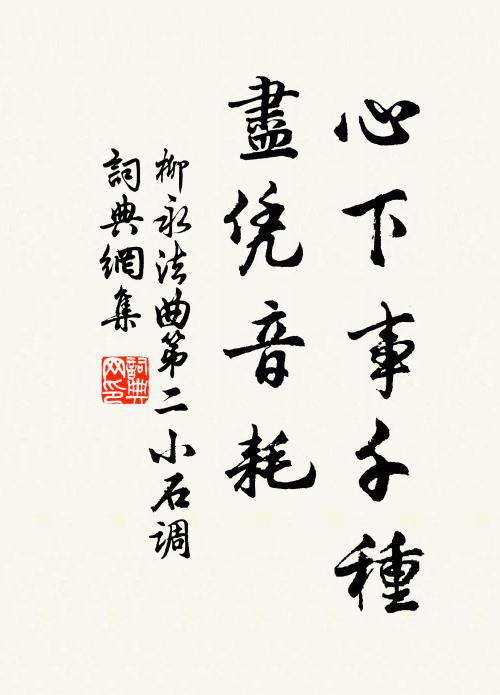 心下事千種
盡凭音耗
柳永法曲第二小石調
詞典網集
詞典網印